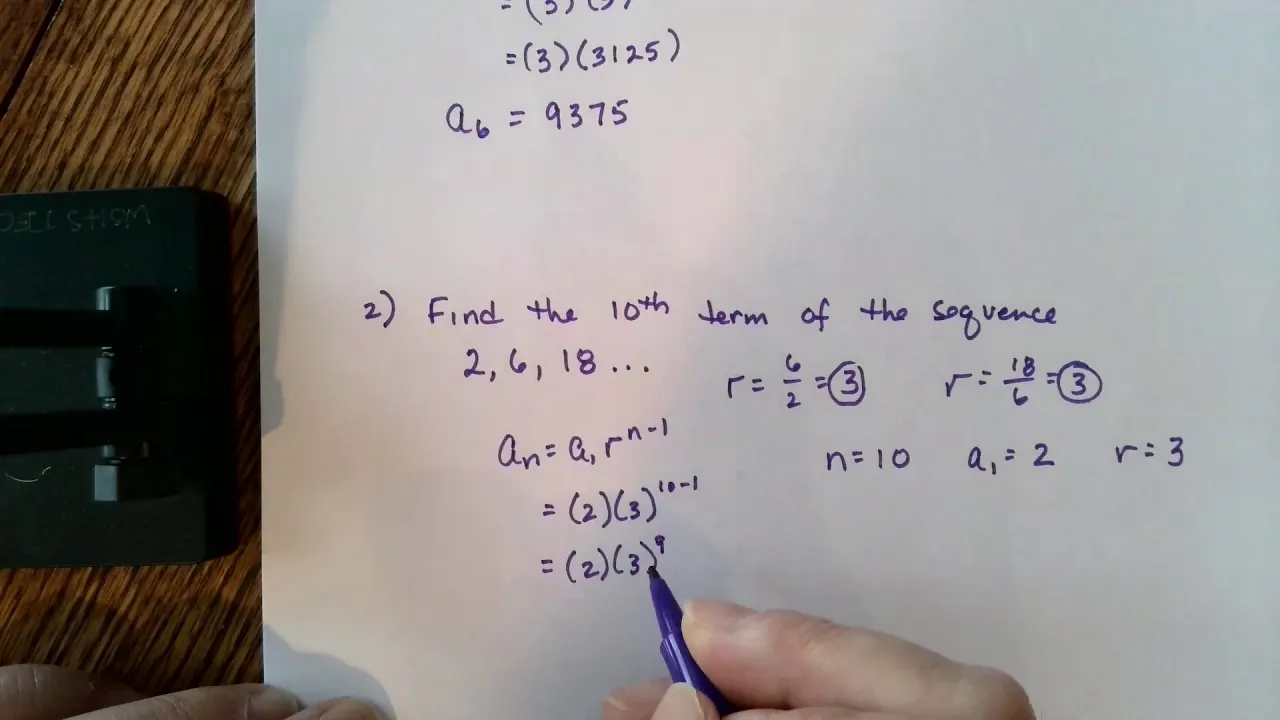 = (3)(3125)
a₆ = 9375
2) Find the 10th term of the sequence
2, 6, 18 ...
r = 6/2 = 3 r = 18/6 = 3
aₙ = a₁ rⁿ⁻¹
n = 10 a₁ = 2 r = 3
= (2)(3)¹⁰⁻¹
= (2)(3)⁹